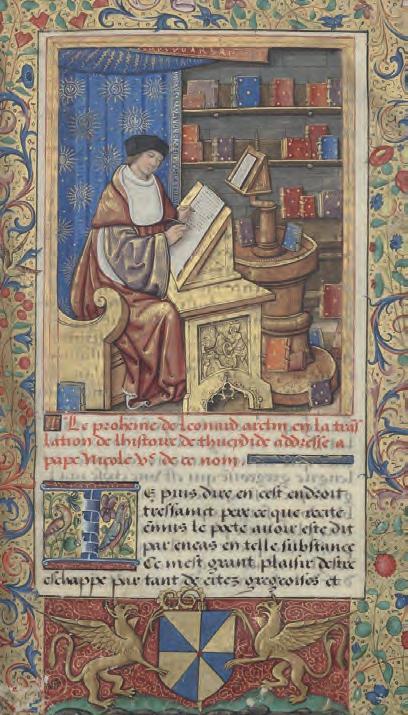 Le proheme de leonard aretin en la tras
lation de lhistoire de thucidide addresse a
pape Nicole V͏ᵉ de ce nom
Ie puis dire en cest endroit
tressainct pere ce que recite
ennius le poete auoir este dit
par eneas en telle substance
Ce mest grant plaisir destre
eschappe par tant de citez gregoises et